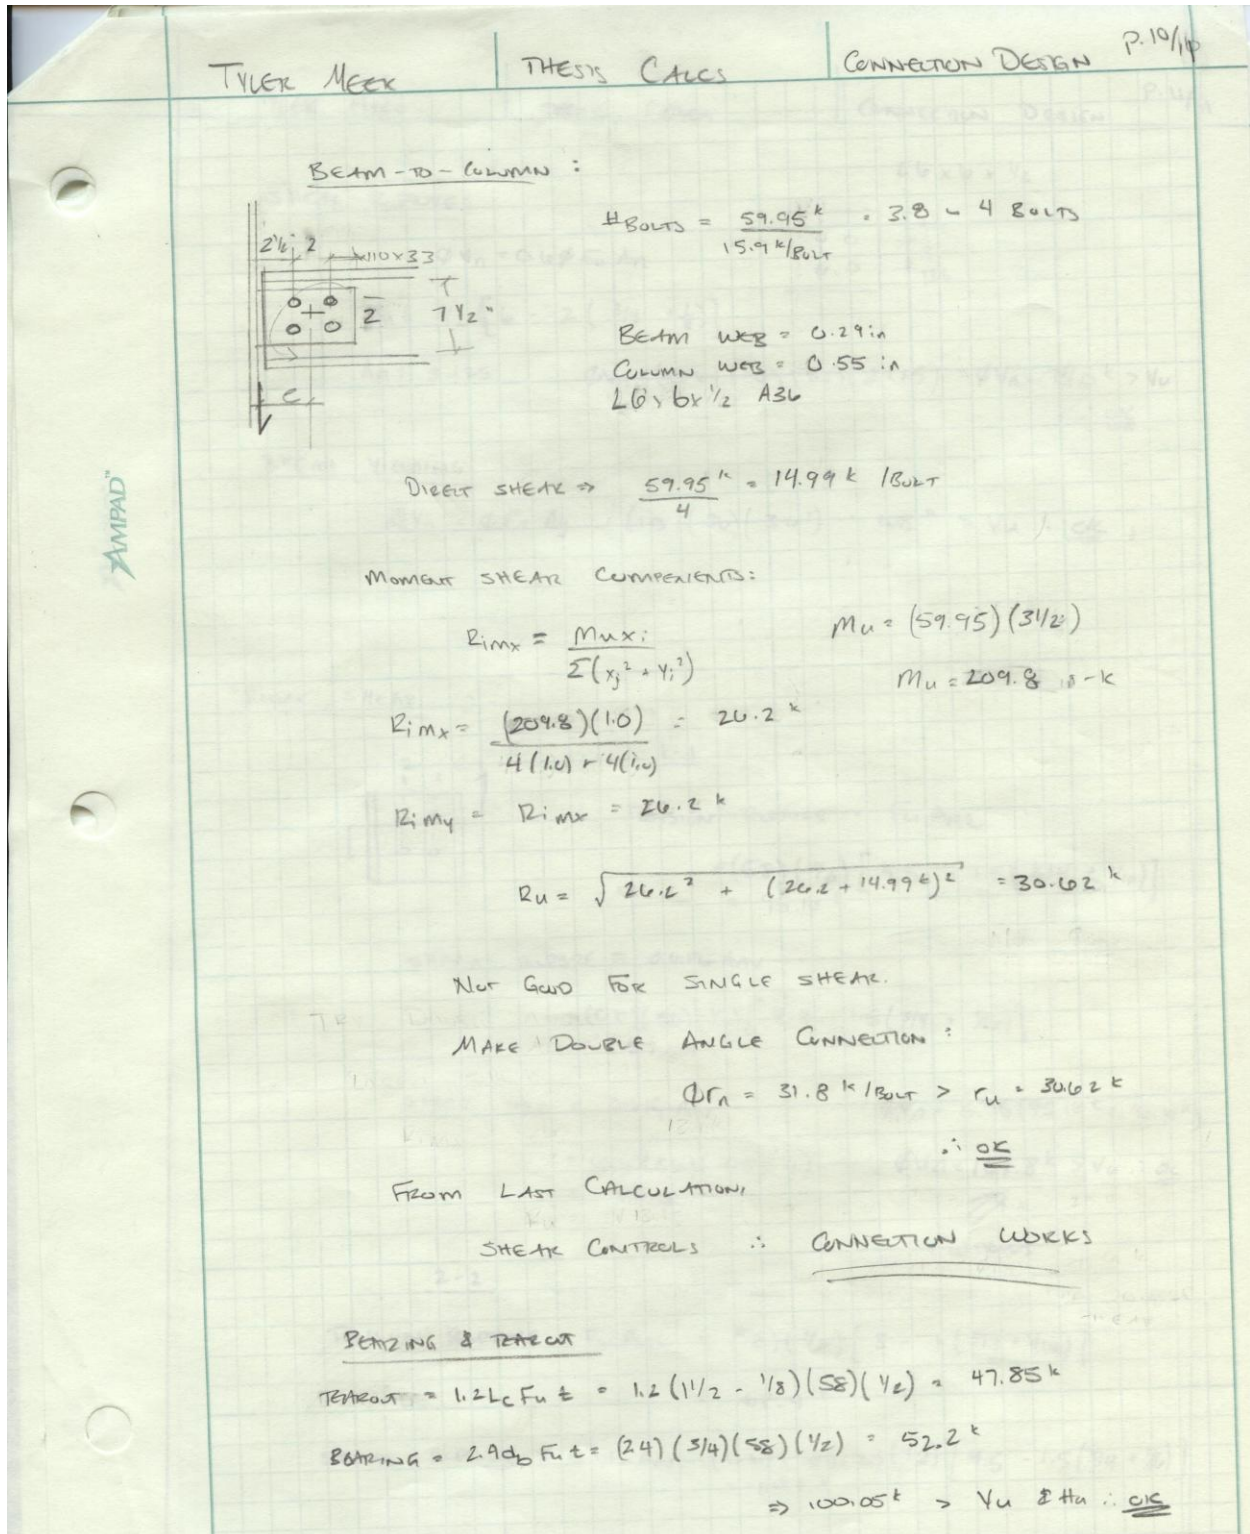 TYLER MEEK THESIS CALCS CONNECTION DESIGN P.10/
BEAM-TO-COLUMN :
#BOLTS = 59.95 k / 15.9 k/BOLT = 3.8 ~ 4 BOLTS
2 1/2 2 W10x33
2 7 1/2"
e
BEAM WEB = 0.29 in
COLUMN WEB = 0.55 in
L6x6x1/2 A36
AMPAD™
DIRECT SHEAR ⇒ 59.95 k / 4 = 14.99 k /BOLT
MOMENT SHEAR COMPENENTS:
Rimx = Muxi / Σ(xj² + yi²) Mu = (59.95)(3 1/2)
Mu = 209.8 in-k
Rimx = (209.8)(1.0) / 4(1.0) + 4(1.0) = 26.2 k
Rimy = Rimx = 26.2 k
Ru = √26.2² + (26.2 + 14.99 k)² = 30.62 k
NOT GOOD FOR SINGLE SHEAR.
MAKE DOUBLE ANGLE CONNECTION :
Φrn = 31.8 k/BOLT > ru = 30.62 k
∴ OK
FROM LAST CALCULATION,
SHEAR CONTROLS ∴ CONNECTION WORKS
BEARING & TEAROUT
TEAROUT = 1.2LcFut = 1.2(1 1/2 - 1/8)(58)(1/2) = 47.85 k
BEARING = 2.4dbFut = (2.4)(3/4)(58)(1/2) = 52.2 k
⇒ 100.05 k > Vu & Hu ∴ OK